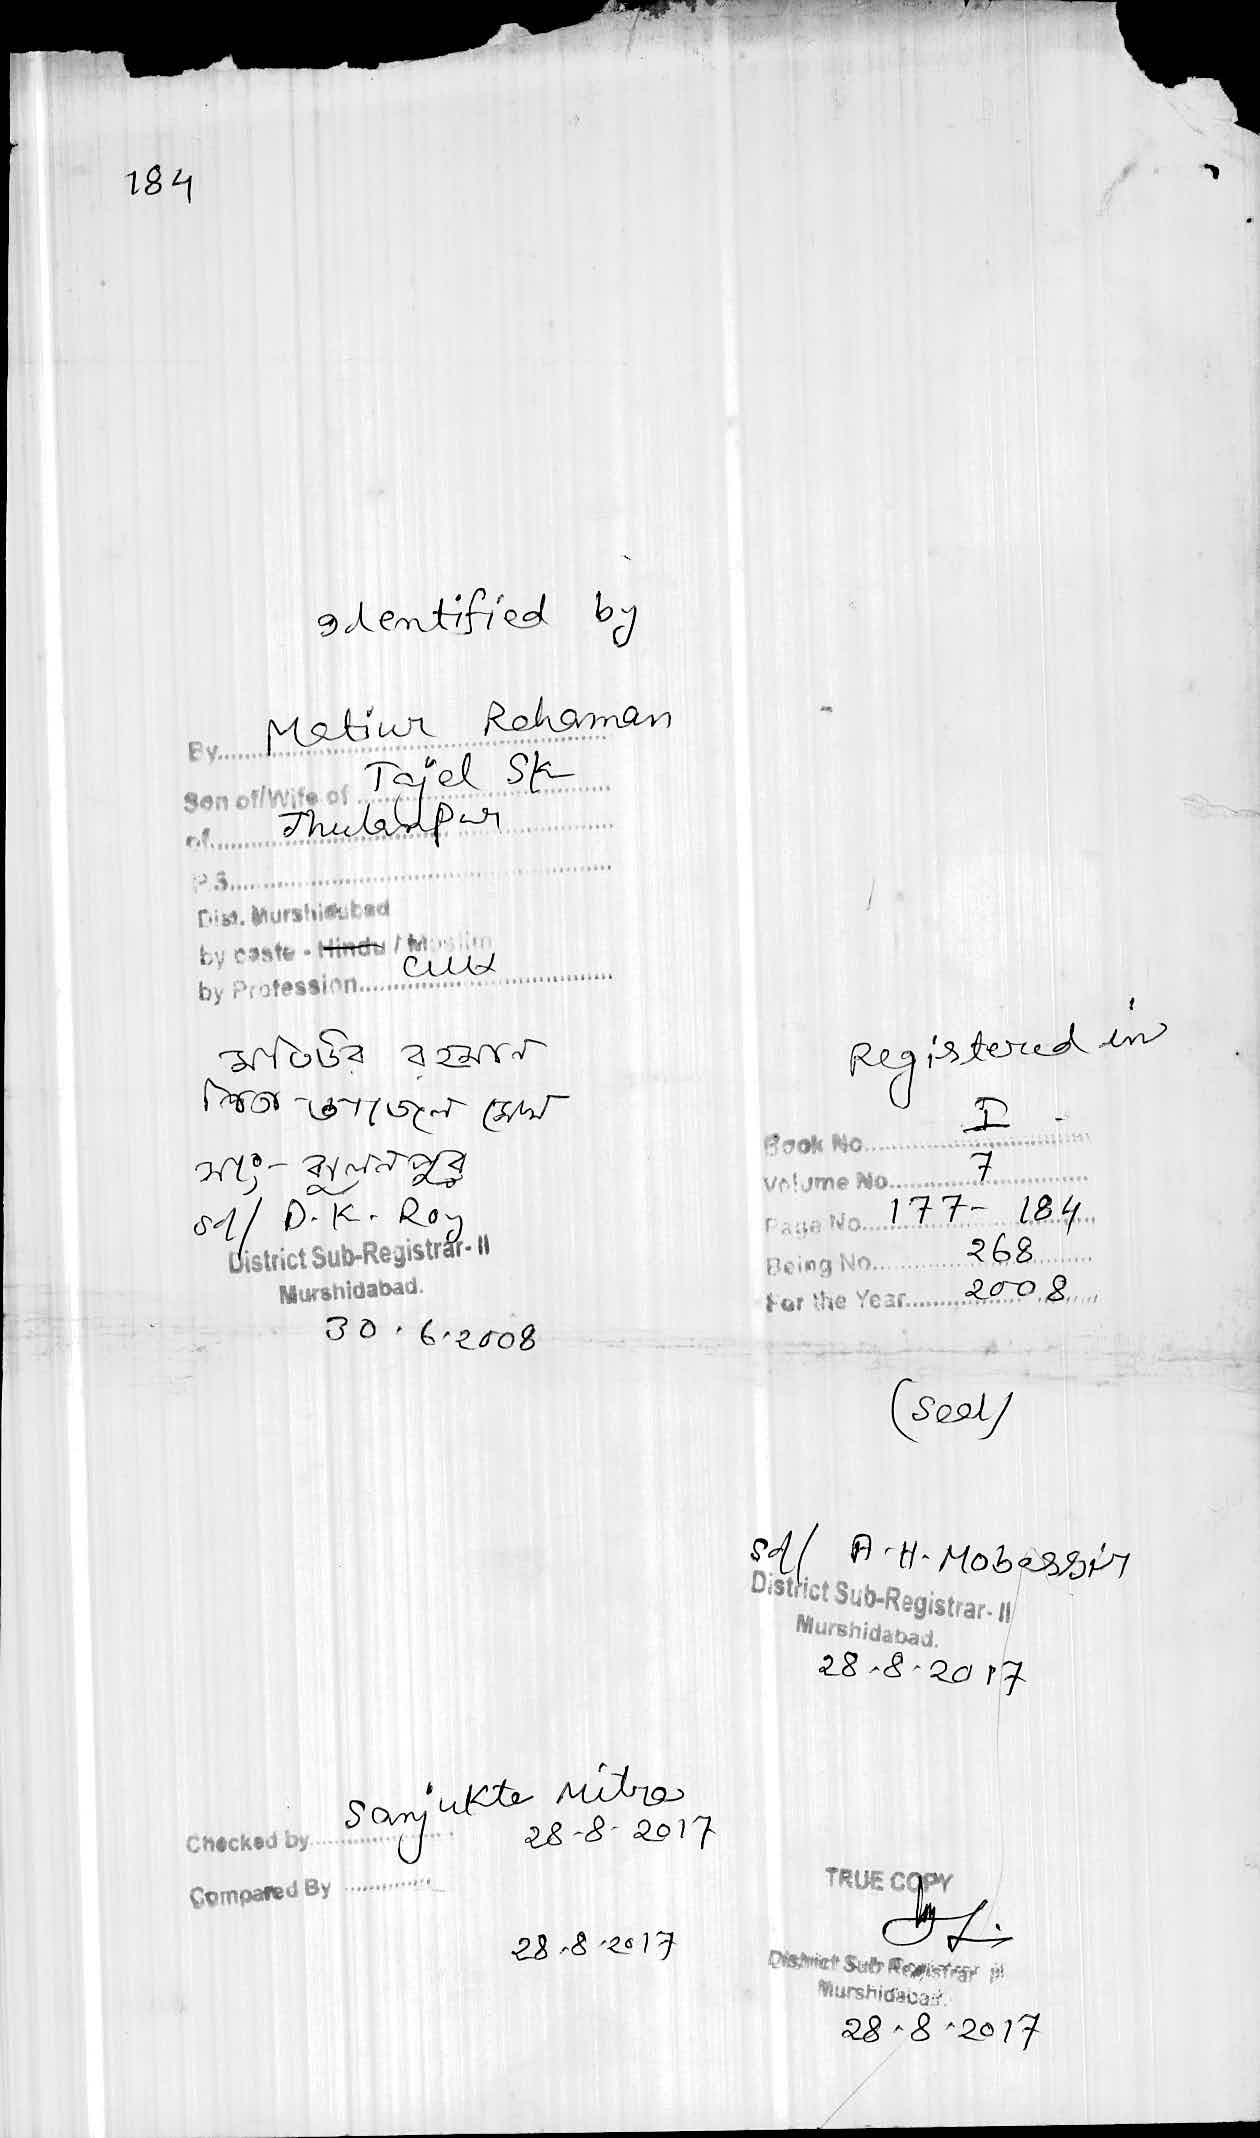 184
Identified by
By Matiur Rahaman
Son of/Wife of Tajel SK
of Jhulanpur
P.S.
Dist. Murshidabad
by caste - Hindu / Moslim
by Profession
মতিউর রহমান
পিতা - তাজেল সেখ
সাং - ঝুলনপুর
sd/ D. K. Roy
District Sub-Registrar- II
Murshidabad.
30.6.2008
Registered in
Book No. I
Volume No. 7
Page No. 177 - 184
Being No. 268
For the Year 2008
(Seal)
sd/ A. H. Mobassir
District Sub-Registrar- II
Murshidabad.
28.8.2017
Checked by Sanjukta Mitra
28-8-2017
Compared By
28.8.2017
TRUE COPY
District Sub Registrar II
Murshidabad.
28.8.2017